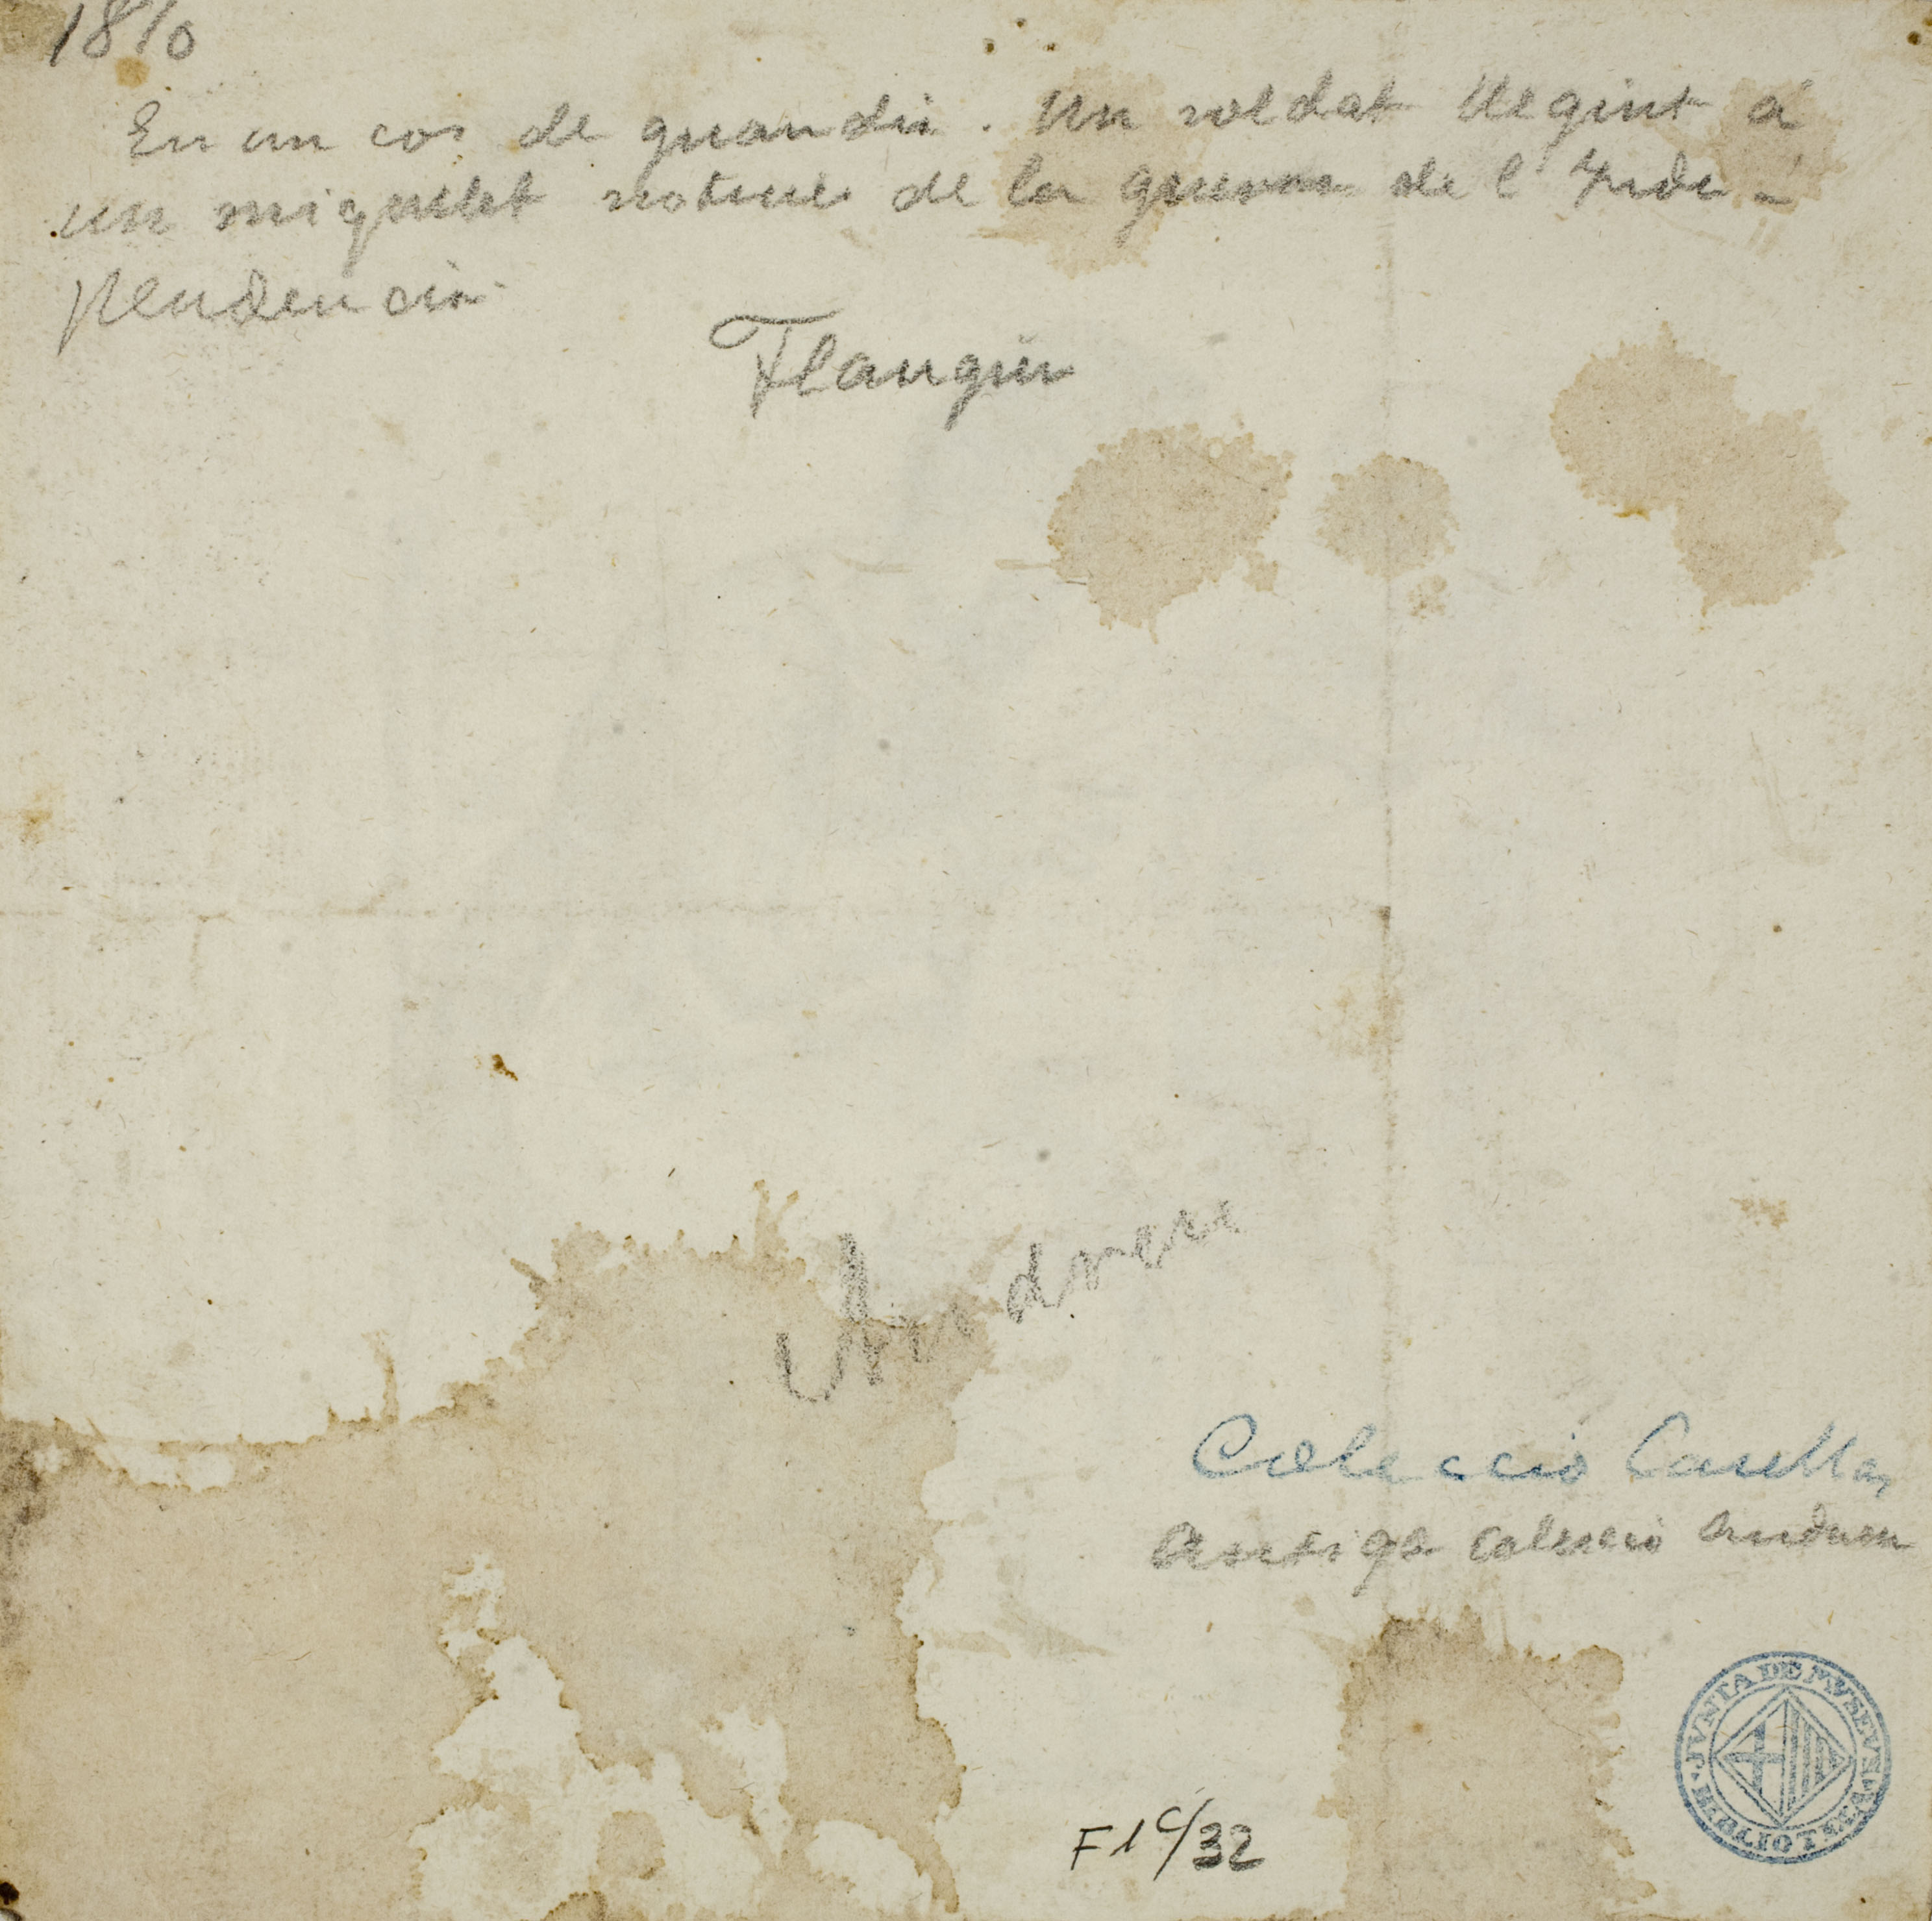 1810
En un cos de guardia. Un soldat llegint á
un miquelet noticies de la guerra de l'Inde-
pendencia.
Flaugier
Andreu
Colecció Casellas
Antiga colecció Andreu
F1 C/32
JVNTA DE MVSEVS · BIBLIOTECA ·